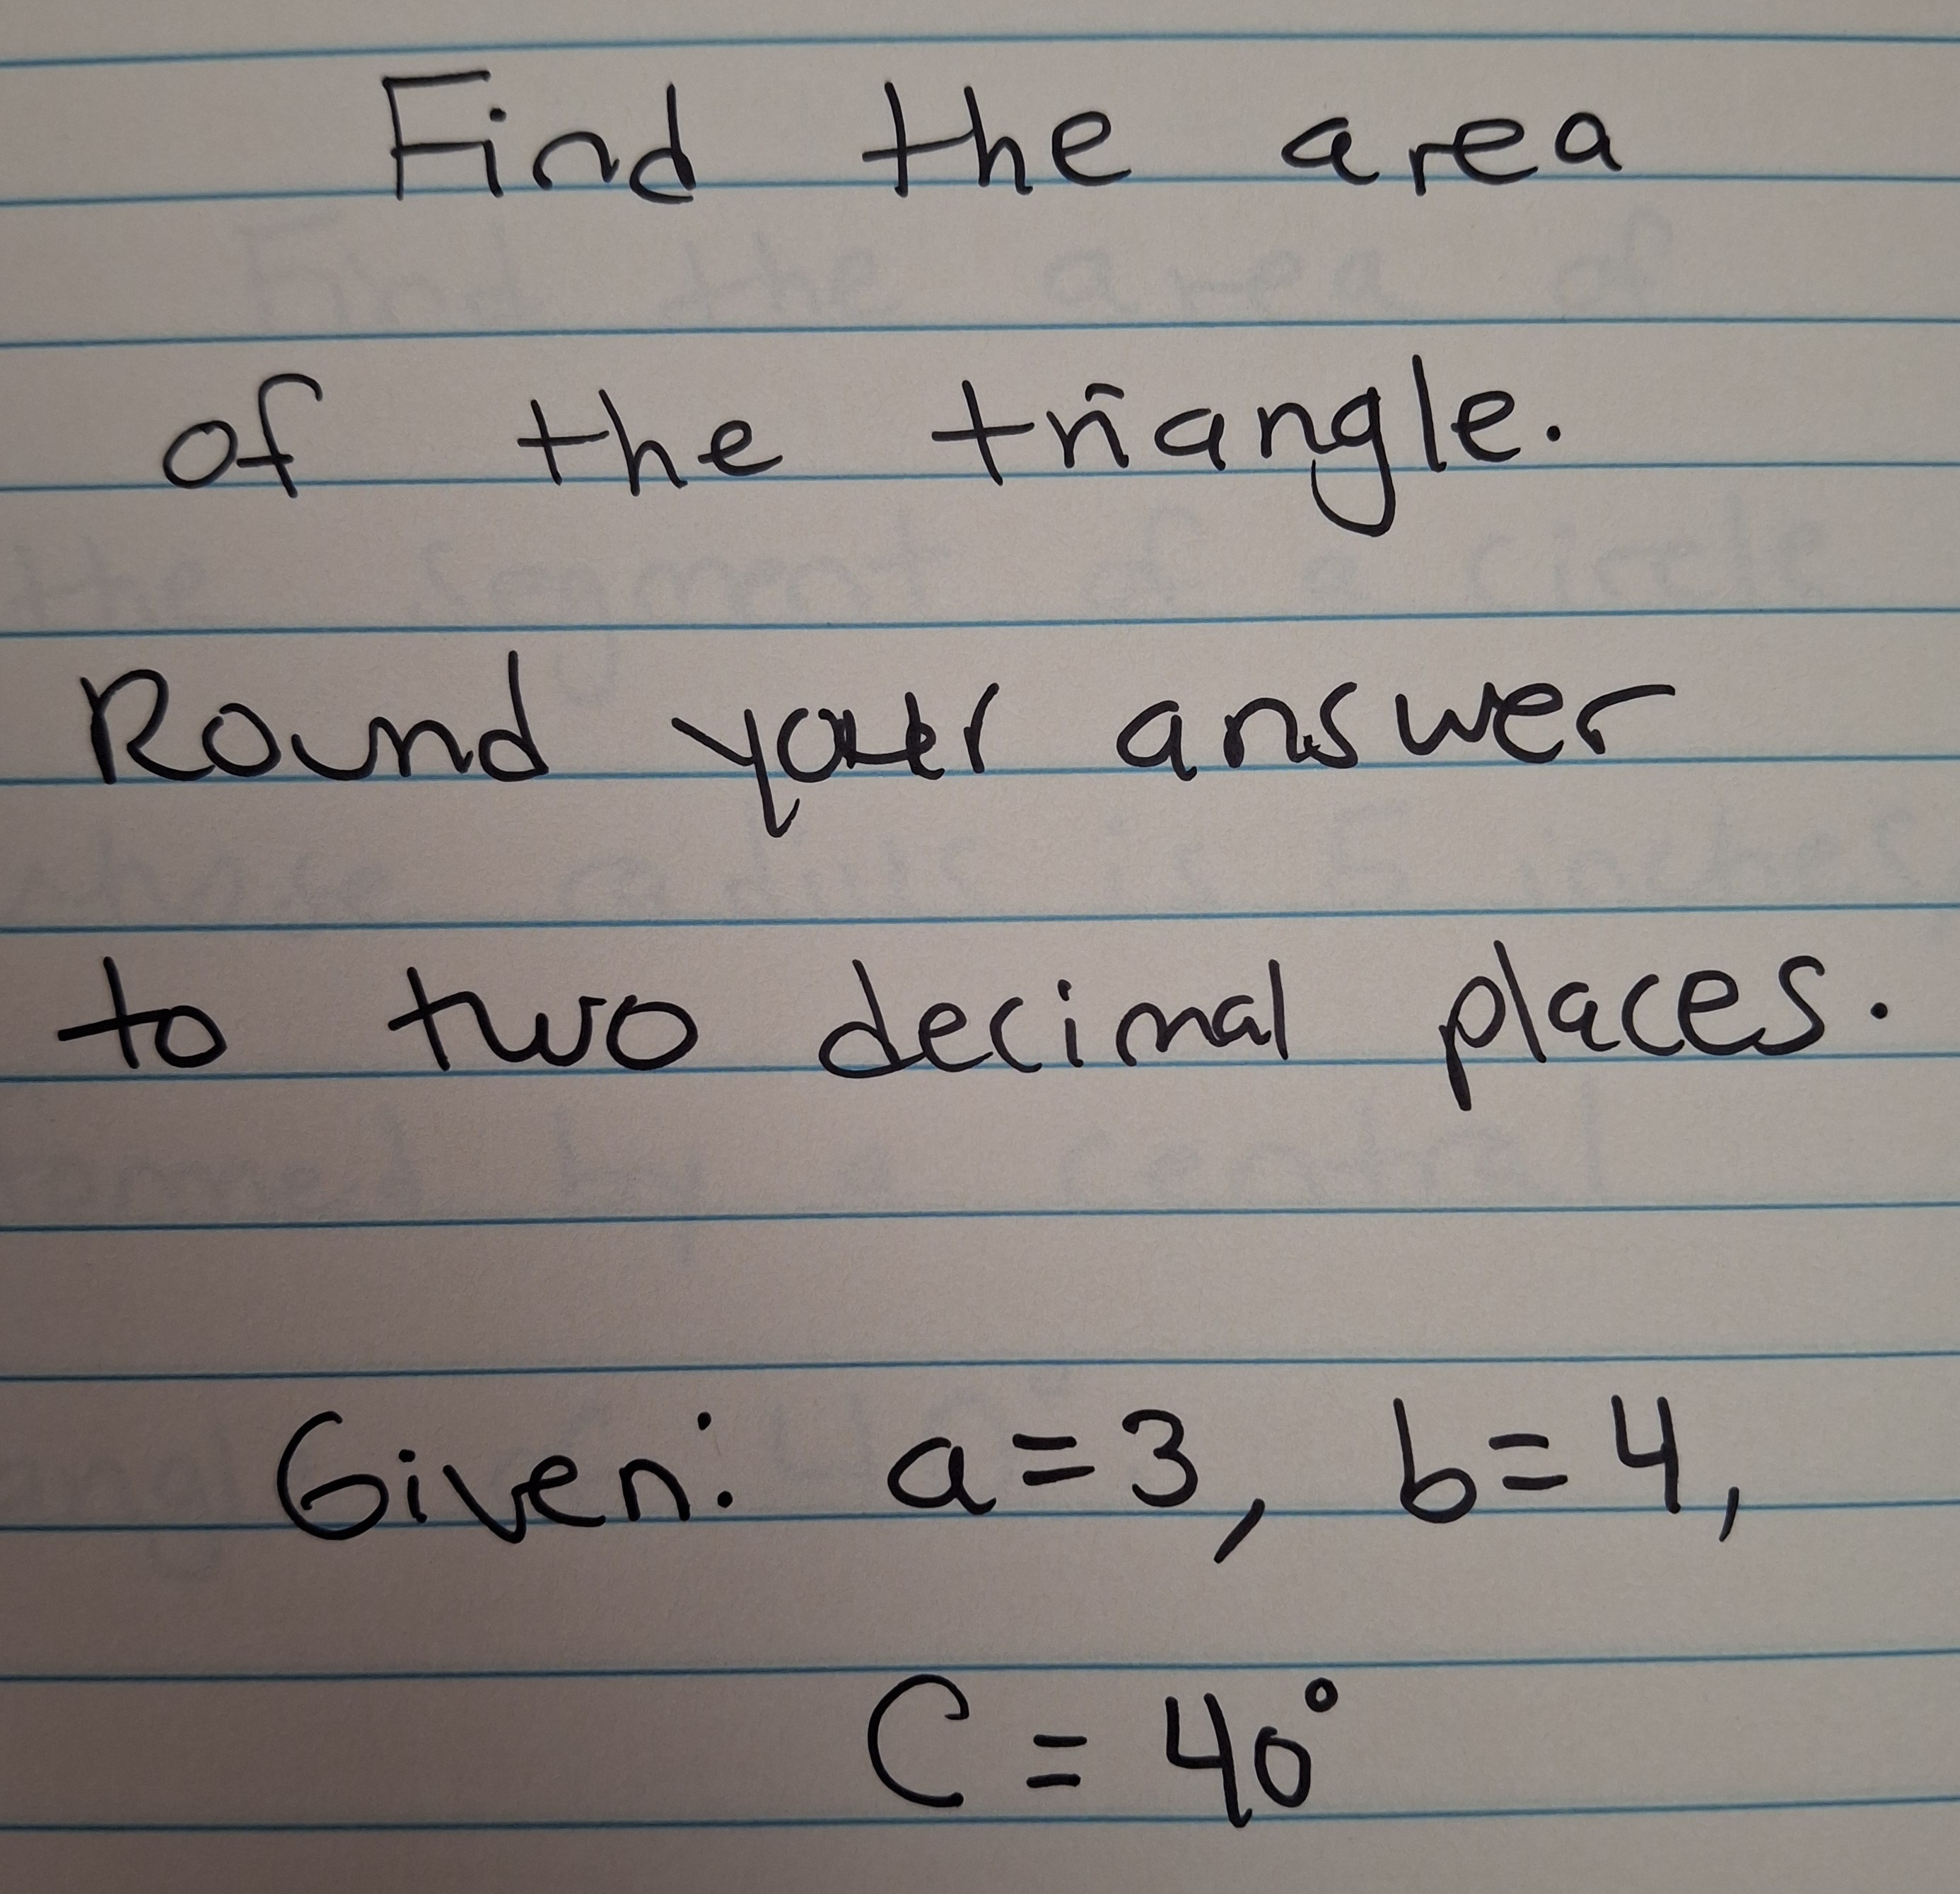 Find the area
of the triangle.
Round your answer
to two decimal places.
Given: a=3, b=4,
C = 40°